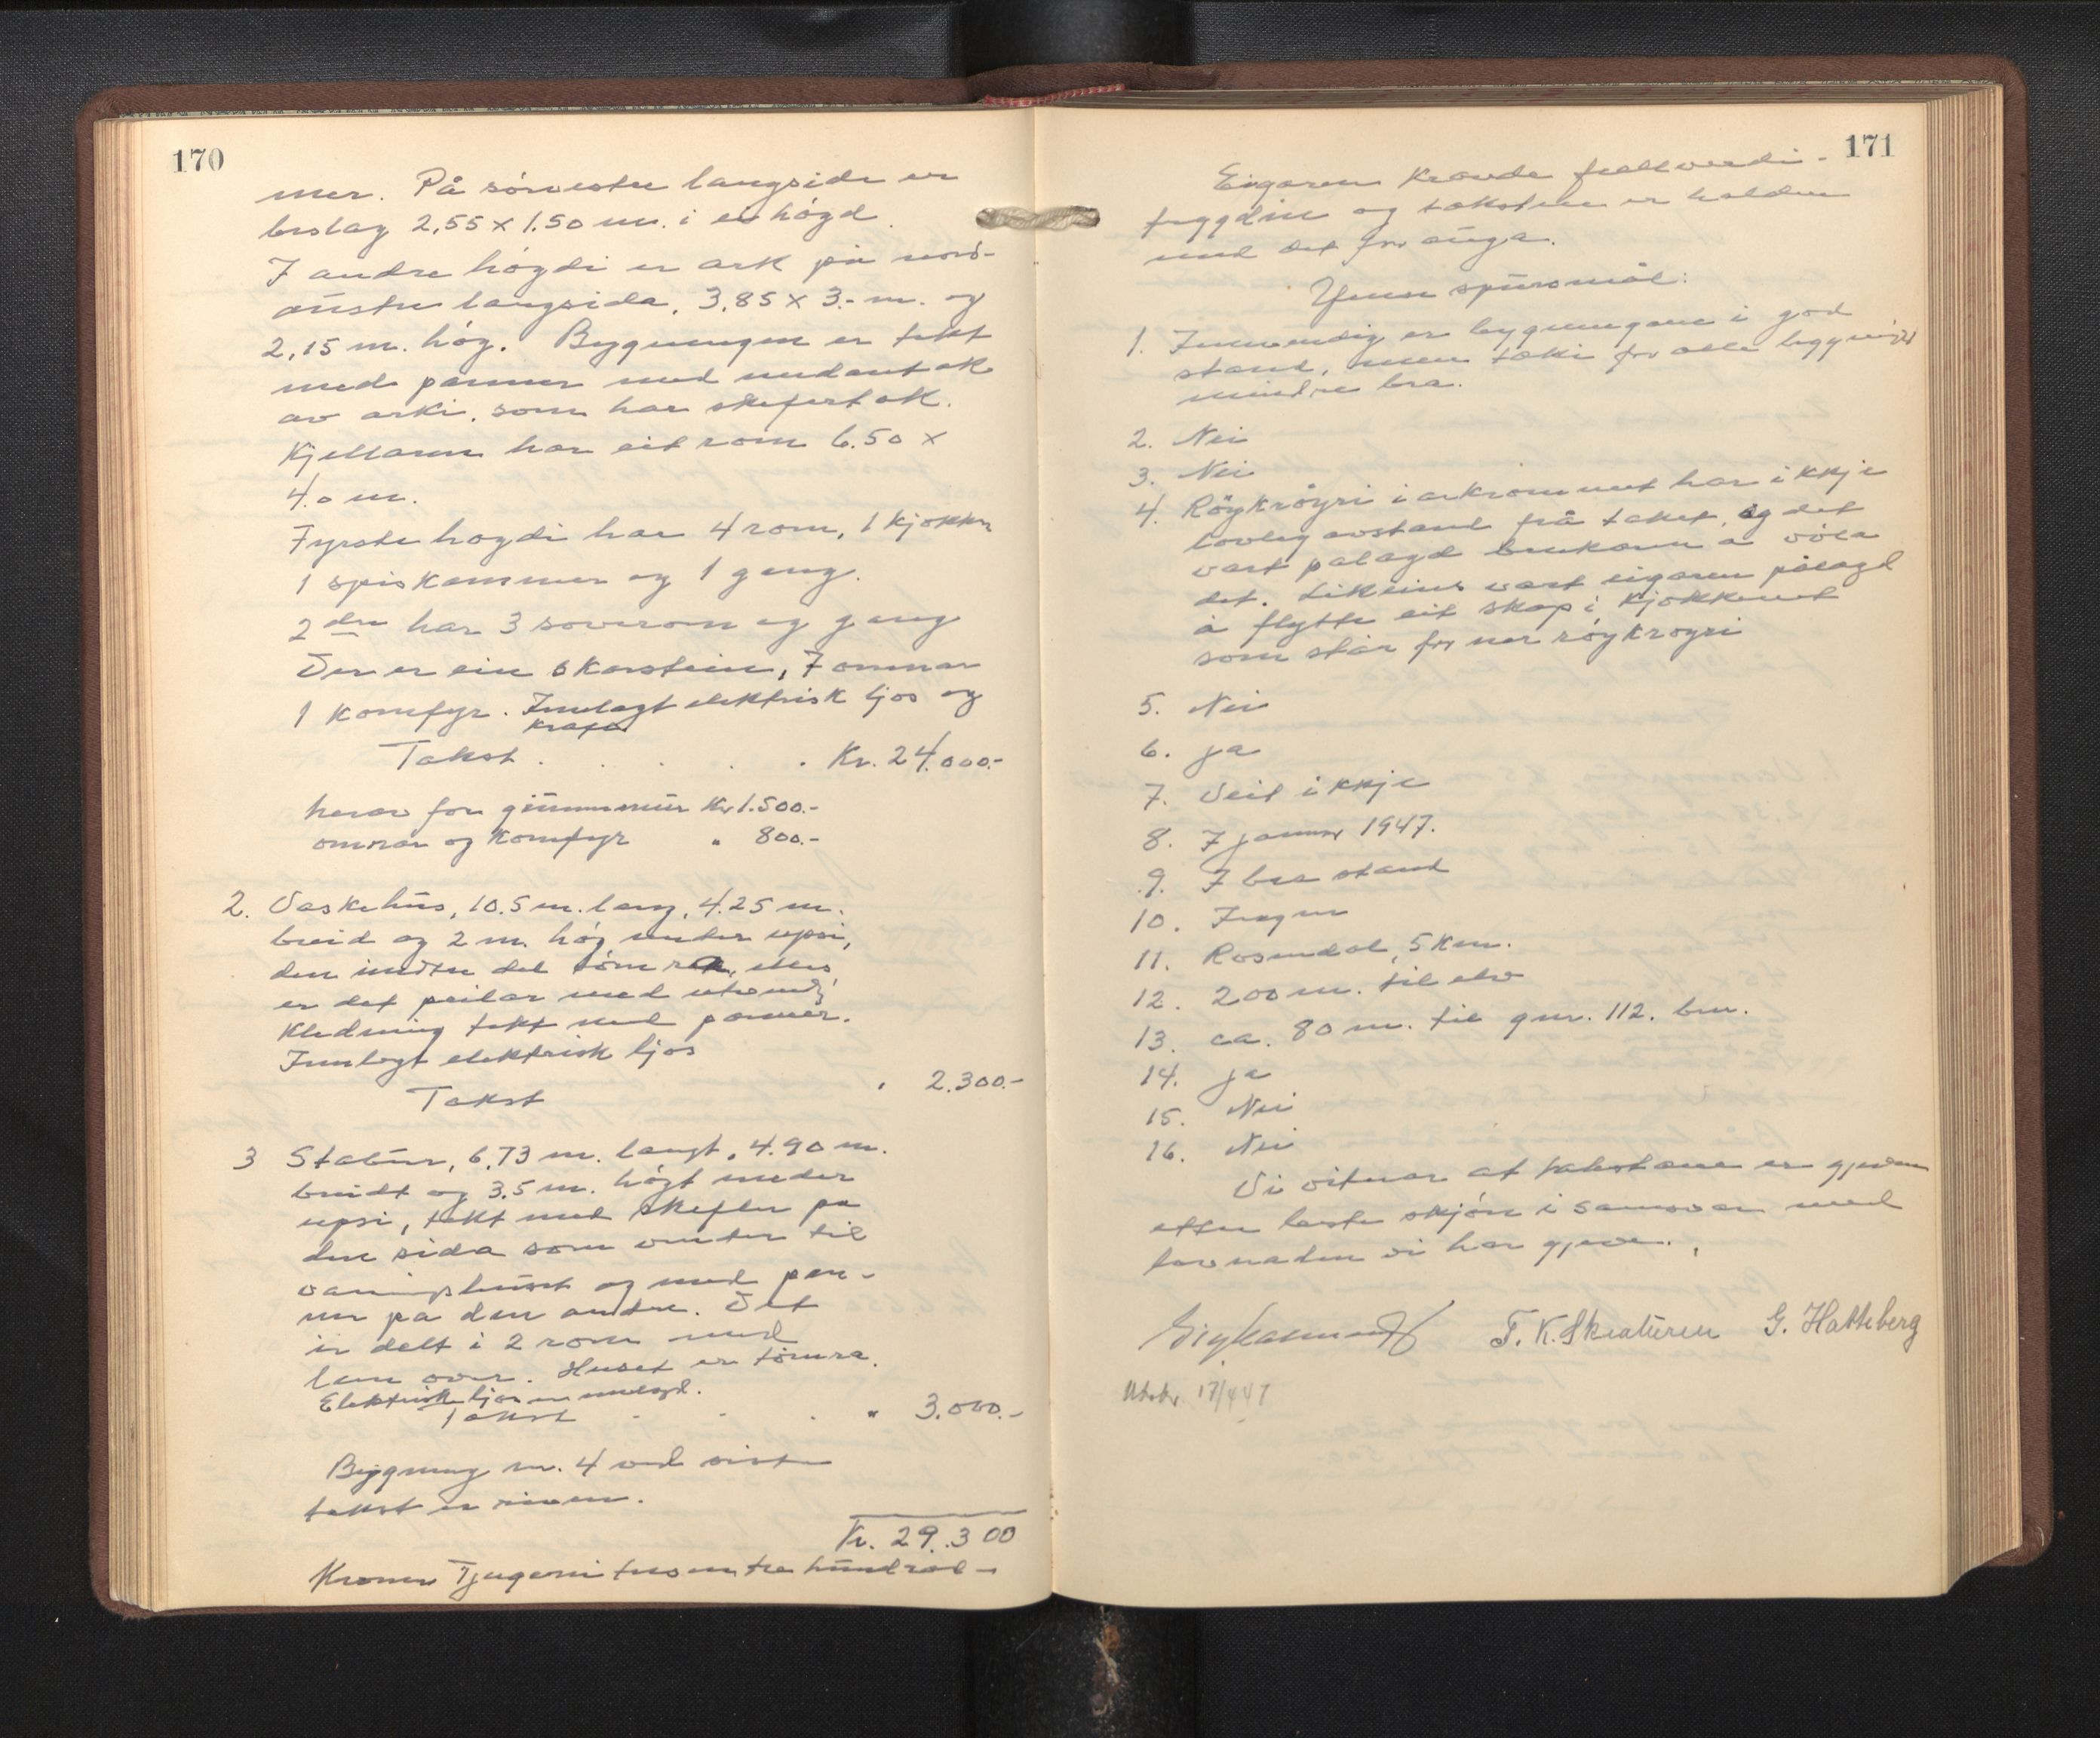 170
mer. På sørvestre langside er
beslag 2,55 x 1.50 m. i ei høgd.
I andre høgdi er ark på nord-
austre langsida, 3,85 x 3.- m. og
2,15 m. høg. Bygningen er tekt
med panner med undantak
av arki, som har skifertak.
Kjellaren har eit rom 6.50 x
4.0 m.
Fyrste hogdi har 4 rom, 1 kjøkken
1 spiskammer og 1 gang.
2 dre har 3 soverom og gang
Der er ein skorstein, 7 omnar
1 komfyr. Innlagt elektrisk ljos og
kraft
Takst . . . . . Kr. 24.000.-
herav for grunnmur Kr 1.500.-
omnar og komfyr " 800.-
2. Vaskehus, 10.5 m. lang, 4.25 m.
breid og 2 m. høg under upsi,
den indre del tømra, elles
er det peilar med utvendi
kledning tekt med panner.
Innlagt elektrisk ljos
Takst " 2.300.-
3 Stabur, 6,73 m. langt, 4.90 m.
breidt og 3.5 m. høgt under
upsi, tekt med skifler pa
den sida som vender til
vaningshuset og med pan-
ner pa den andre. Det
er delt i 2 rom med
lem over. Huset er tømra.
Elektrisk ljos er innlagt.
Takst . . . " 3.000.-
Bygning nr. 4 ved siste
takst er riven.
Kr. 29.300
Kroner Tjugeni tusen tre hundrad -
171
Eigaren kravde fullverdi-
tryggdin og taksten er halden
med det for auga.
Ymse spursmål:
1. Innvendig er bygningane i god
stand, men tæki for alle bygningar
mindre bra.
2. Nei
3. Nei
4. Røykrøyri i arkrommet har ikkje
lovleg avstand frå taket, og det
vart palagd brukaren a vøla
det. Likeins vart eigaren pålagd
å flytte eit skap i kjøkkenet
som står for nær røykrøyri
5. Nei
6. ja
7. Veit ikkje
8. 7 januar 1947.
9. I bra stand
10. Ingen
11. Rosendal, 5 km.
12. 200 m. til elv
13. ca. 80 m. til gnr. 112. bnr.
14. ja
15. Nei
16. Nei
Vi vitnar at takstane er gjevne
etter beste skjøn i samsvar med
lovnaden vi har gjeve.
T. K. Skeaturen G. Hatteberg
Utskr. 17/4 47